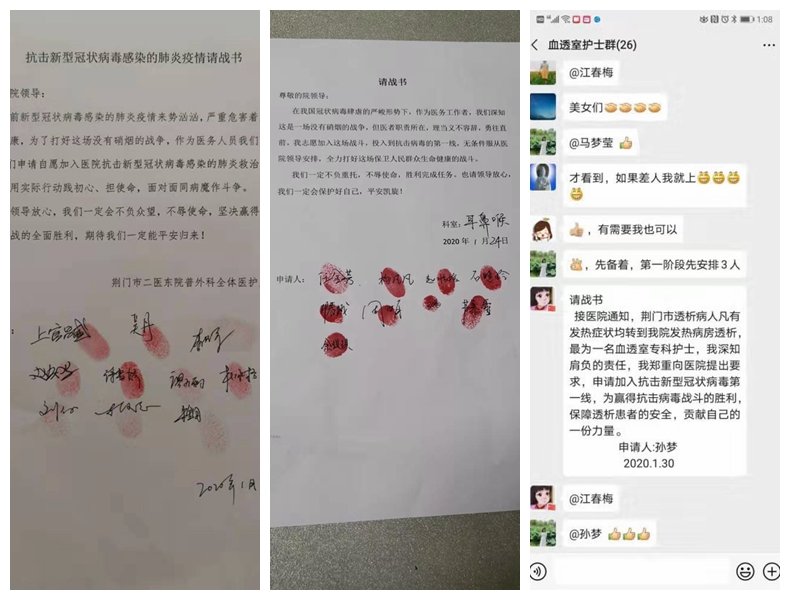 抗击新型冠状病毒感染的肺炎疫情请战书
院领导：
前新型冠状病毒感染的肺炎疫情来势汹汹，严重危害着
康，为了打好这场没有硝烟的战争，作为医务人员我们
门申请自愿加入医院抗击新型冠状病毒感染的肺炎救治
用实际行动践初心、担使命，面对面同病魔作斗争。
领导放心，我们一定会不负众望，不辱使命，坚决赢得
战的全面胜利，期待我们一定能平安归来！
荆门市二医东院普外科全体医护
2020年1月
请战书
尊敬的院领导：
在我国冠状病毒肆虐的严峻形势下，作为医务工作者，我们深知
这是一场没有硝烟的战争，但医者职责所在，理当义不容辞，勇往直
前。我志愿加入这场战斗，投入到抗击病毒的第一线，无条件服从医
院领导安排，全力打好这场保卫人民群众生命健康的战斗。
我们一定不负重托，不辱使命，胜利完成任务。也请领导放心，
我们一定会保护好自己，平安凯旋！
科室：耳鼻喉
2020 年 1 月 24 日
申请人：
1:08
血透室护士群(26)
@江春梅
美女们
@马梦莹
才看到，如果差人我就上
，有需要我也可以
，先备着，第一阶段先安排3人
请战书
接医院通知，荆门市透析病人凡有
发热症状均转到我院发热病房透析，
最为一名血透室专科护士，我深知
肩负的责任，我郑重向医院提出要
求，申请加入抗击新型冠状病毒第
一线，为赢得抗击病毒战斗的胜利，
保障透析患者的安全，贡献自己的
一份力量。
申请人:孙梦
2020.1.30
@江春梅
@孙梦